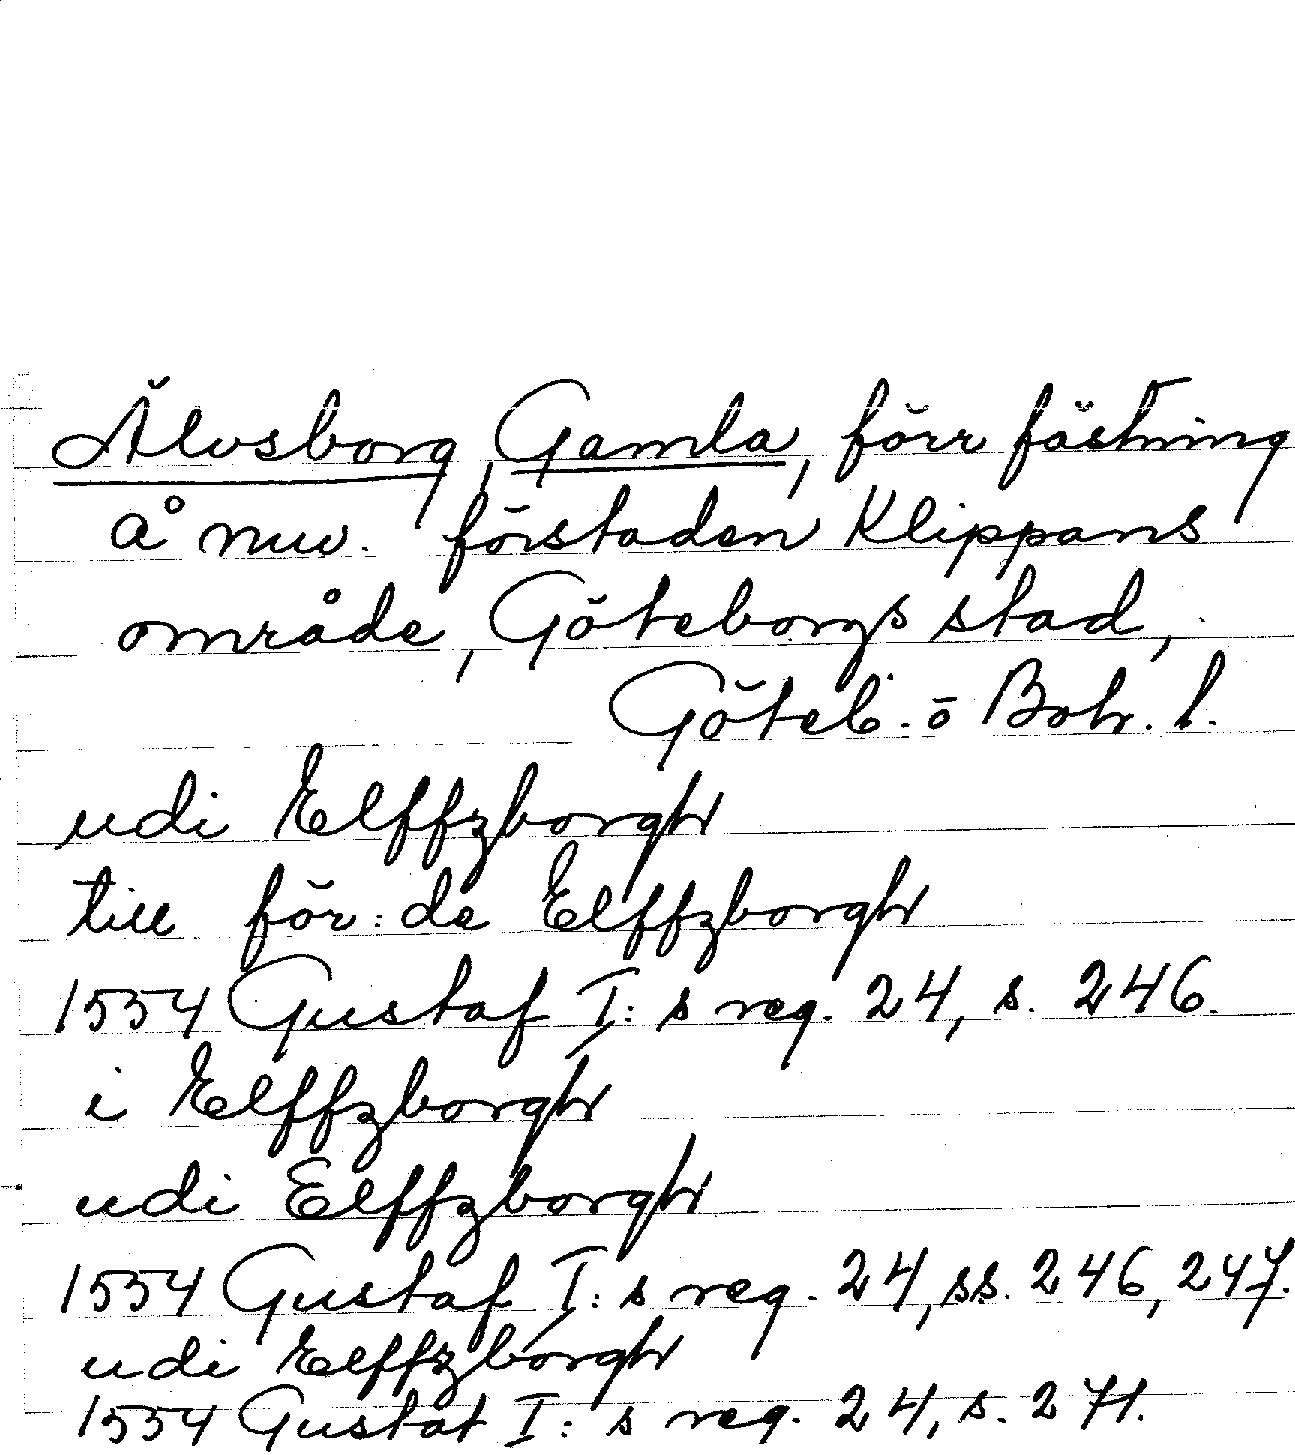 Älvsborg, Gamla, förr fästning
å nuv. förstaden Klippans
område, Göteborgs stad,
Göteb. o Boh. l.
udi Elffzborgh
till för:de Elffzborgh
1554 Gustaf I:s reg. 24, s. 246.
i Elffzborgh
udi Elffzborgh
1554 Gustaf I:s reg. 24, ss. 246, 247.
udi Elffzborgh
1554 Gustaf I:s reg. 24, s. 271.